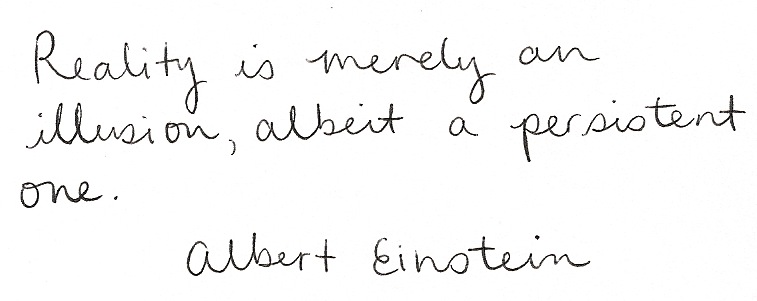 Reality is merely an
illusion, albeit a persistent
one.
Albert Einstein